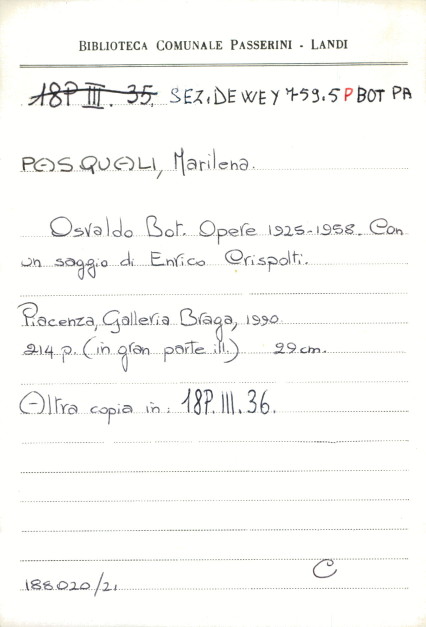 BIBLIOTECA COMUNALE PASSERINI - LANDI
18P III. 35. SEZ. DEWEY 759.5 P BOT PA
PASQUALI, Marilena.
Osvaldo Bot. Opere 1925-1958. Con
un saggio di Enrico Crispolti.
Piacenza, Galleria Braga, 1990
214 p. (in gran parte ill.) 29 cm.
Altra copia in: 18P. III. 36.
C
188020/21